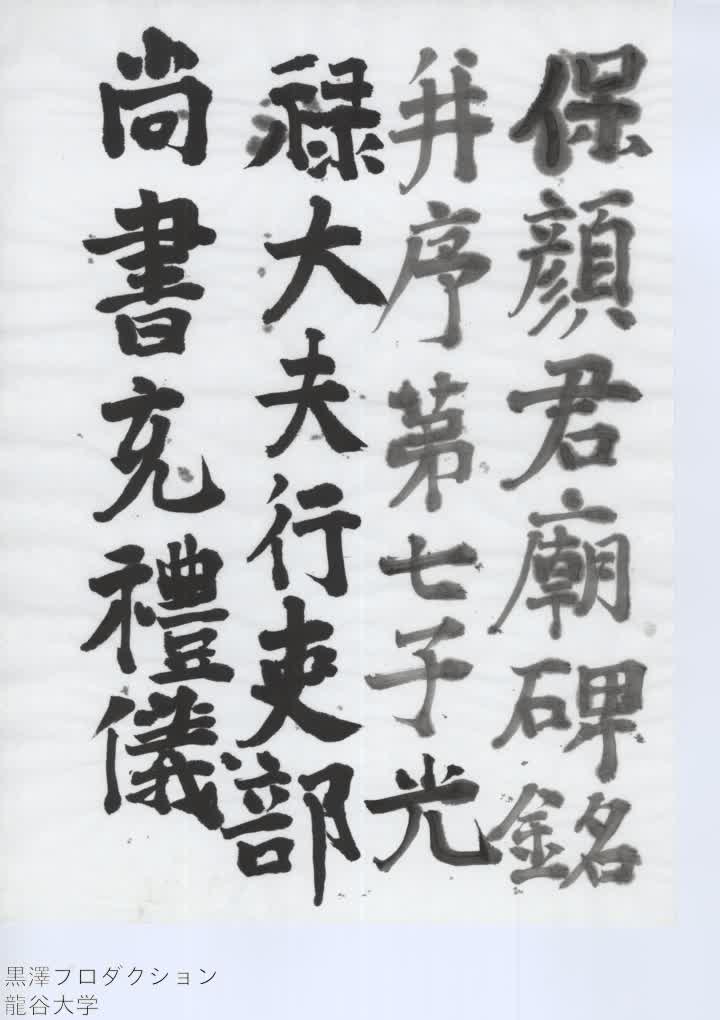 保顏君廟碑銘
并序第七子光
祿大夫行吏部
尚書充禮儀
黒澤プロダクション
龍谷大学